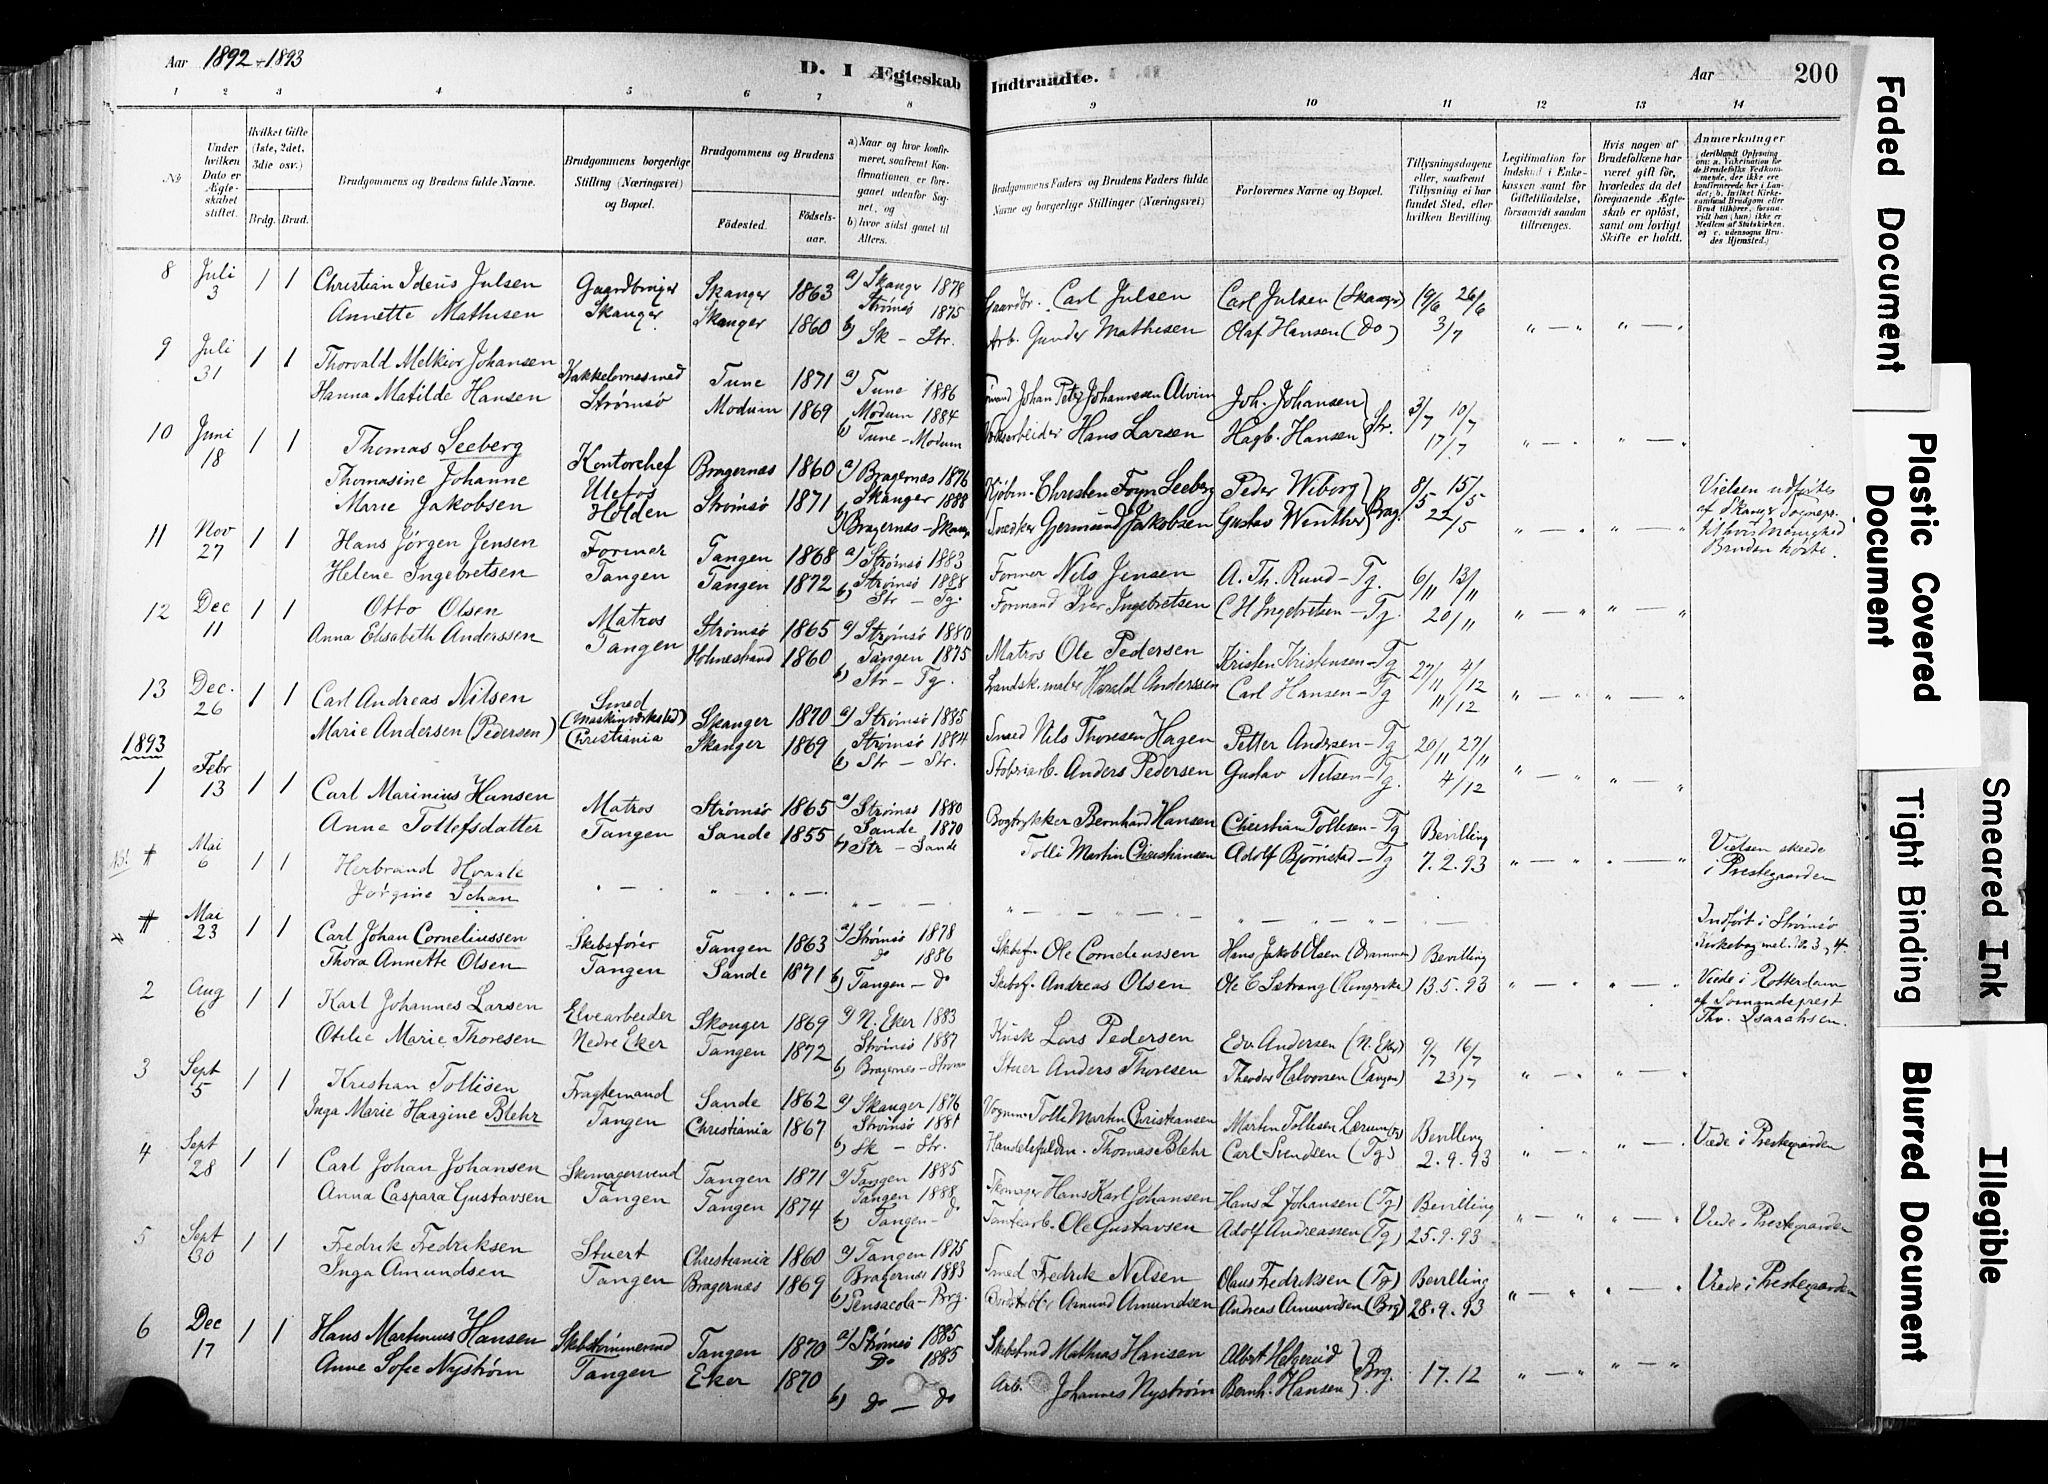 Aar 1892-1893
D. I Ægteskab
Indtraadte.
Aar
200
1 2 3 4 5 6 7 8 9 10 11 12 13 14
No
Under hvilken Dato er Ægteskabet stiftet.
Hvilket Gifte (1ste, 2det, 3die osv.)
Brdg. Brud.
Brudgommens og Brudens fulde Navne.
Brudgommens borgerlige Stilling (Næringsvei) og Bopæl.
Brudgommens og Brudens
Fødested.
Fødselsaar.
a) Naar og hvor konfirmeret, saafremt Konfirmationen er foregaaet udenfor Sognet, og
b) hvor sidst gaaet til Alters.
Brudgommens Faders og Brudens Faders fulde Navne og borgerlige Stillinger (Næringsvei)
Forlovernes Navne og Bopæl.
Tillysningsdagene eller, saafremt Tillysning ei har fundet Sted, efter hvilken Bevilling.
Legitimation for Indskud i Enkekassen samt for Giftetilladelse, forsaavidt saadan tiltrænges.
Hvis nogen af Brudefolkene har været gift før, hvorledes da det foregaaende Ægteskab er opløst, samt om lovligt Skifte er holdt.
Anmærkninger
8 Juli 3 1 1 Christian Iderius Julsen Gaardbruger Skanger 1863 a) Skanger 1878 Gaardbr. Carl Julsen Carl Julsen (Skanger) 19/6 26/6
Annette Mathisen Skanger Skanger 1860 Strømsø 1875 b) Sk - Str. Arb. Gunder Mathesen Olaf Hansen (do) 3/7
9 Juli 31 1 1 Thorvald Melkior Johansen Kakkelovnssmed Tune 1871 a) Tune 1886 Johan Peter Johannssen Alvim Joh. Johansen 3/7 10/7
Hanna Matilde Hansen Strømsø Modum 1869 Modum 1884 b) Tune - Modum Hans Larsen Hagb. Hansen Str. 17/7
10 Juni 18 1 1 Thomas Seeberg Kontorchef Bragernæs 1860 a) Bragernæs 1876 Kjøbm. Christen Foyn Seeberg Peder Wiborg 8/5 15/5 Vielsen udførtes
Thomasine Johanne Marie Jakobsen Ulefos Holden Strømsø 1871 Skanger 1888 b) Bragernæs - Skanger Snedker Gjermund Jakobsen Gustav Wenther Brag. 22/5 af Skanger Sognepr. til hvis Menighed Bruden hørte.
11 Nov 27 1 1 Hans Jørgen Jensen Former Tangen 1868 a) Strømsø 1883 Former Nils Jensen A. Th. Ruud - Tg. 6/11 13/11
Helene Ingebretsen Tangen Tangen 1872 Strømsø 1888 b) Str - Tg. Formand Iver Ingebretsen C H Ingebretsen - Tg. 20/11
12 Dec 11 1 1 Otto Olsen Matros Strømsø 1865 a) Strømsø 1880 Matros Ole Pedersen Kristen Kristensen - Tg 27/11 4/12
Anna Elisabeth Anderssen Tangen Holmestrand 1860 Tangen 1875 b) Str - Tg. Harald Anderssen Carl Hansen - Tg 11/12
13 Dec. 26 1 1 Carl Andreas Nilsen Smed (Maskinværksted) Skanger 1870 a) Strømsø 1885 Smed Nils Thoresen Hagen Petter Andersen - Tg 20/11 27/11
Marie Andersen (Pedersen) Christiania Skanger 1869 Strømsø 1884 b) Str - Str. Anders Pedersen Gustav Nilsen - Tg. 4/12
1893
1 Febr 13 1 1 Carl Marinius Hansen Matros Strømsø 1865 a) Strømsø 1880 Bogtrykker Bernhard Hansen Christian Tollisen - Tg Bevilling
Anne Tollefsdatter Tangen Sande 1855 Sande 1870 b) Str - Sande Tolli Martin Christiansen Adolf Bjørnstad - Tg 7.2.93 Vielsen skede i Prestegaarden
Mai 6 1 1 Herbrand Hvaale
Jørgine Schau Indført i Strømsø Kirkebog
Mai 23 1 1 Carl Johan Corneliussen Skibsfører Tangen 1863 a) Strømsø 1878 Skibsf. Ole Corneliussen Hans Jakob Olsen (Drammen) Bevilling
Thora Annette Olsen Tangen Sande 1871 do 1886 b) Tangen - do Skibsf. Andreas Olsen 13.5.93 Viede i Rotterdam af Sømandsprest Thv. Isaachsen.
2 Aug 6 1 1 Karl Johannes Larsen Elvearbeider Skouger 1869 a) N. Eker 1883 Kusk Lars Pedersen Edv. Andersen (N. Eker) 9/7 16/7
Otilie Marie Thoresen Nedre Eker Tangen 1872 Strømsø 1887 b) Bragernes - Strømsø Stuer Anders Thoresen Theodor Halvorsen (Tangen) 23/7
3 Sept 5 1 1 Kristian Tollisen Fragtemand Sande 1862 a) Skanger 1876 Tolli Martin Christiansen Martin Tollisen Lærum (Tg) Bevilling
Inga Marie Haagine Blehr Tangen Christiania 1867 Strømsø 1881 b) Sk - Str. Thomas Blehr Carl Svendsen (Tg) 2.9.93 Viede i Prestegaarden
4 Sept 28 1 1 Carl Johan Johansen Skomagersvend Tangen 1871 a) Tangen 1885 Skomager Hans Karl Johansen Hans L Johansen (Tg) Bevilling
Anna Caspara Gustavsen Tangen Tangen 1874 Tangen 1888 b) Tangen - do Tomtearb. Ole Gustavsen Adolf Andreassen (Tg) 25.9.93 Viede i Prestegaarden
5 Sept 30 1 1 Fredrik Fredriksen Stuert Christiania 1860 a) Tangen 1875 Smed Fredrik Nilsen Olaus Fredriksen (Tg) Bevilling
Inga Amundsen Tangen Bragernæs 1869 Bragernæs 1883 b) Pensacola - Brg. Amund Amundsen Andreas Amundsen (Brg) 28.9.93 Viede i Prestegaarden
6 Dec 17 1 1 Hans Martinius Hansen Skibstømmermand Tangen 1870 a) Strømsø 1885 Mathias Hansen Albert Helgerud
Anne Sofie Nystrøm Tangen Eker 1870 Do 1885 b) do - do Arb. Johannes Nystrøm Bernh. Hansen Brg. 17.12
Faded Document
Plastic Covered Document
Tight Binding
Smeared Ink
Blurred Document
Illegible